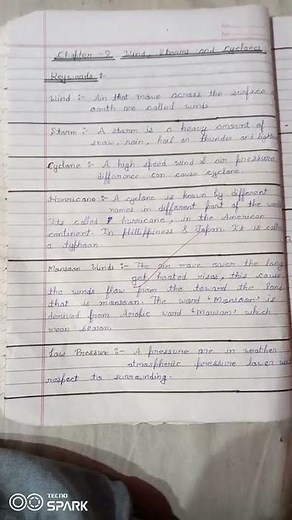 Chapter - 8 Wind, Stroms and Cyclones
Keywords :-
Wind :- Air that move across the surface
earth are called winds
Storm :- A storm is a heavy amount of
snow, rain, hail or thunder and
Cyclone :- A high speed wind & air pressure
difference can cause cyclone
Hurricane :- A cyclone is known by different
names in different part of the
It's called hurricane, in the American
continent In Phillippiness & Japan It is
a typhoon
Monsoon Winds :- The air over the land
get heated rises, this cause
the winds flow from the toward the land
that is monsoon. The word 'Monsoon' is
derived from Arabic word which
mean season
Low Pressure :- A pressure are in weather
atmospheric pressure lower
respect to surrounding.
TECNO
SPARK